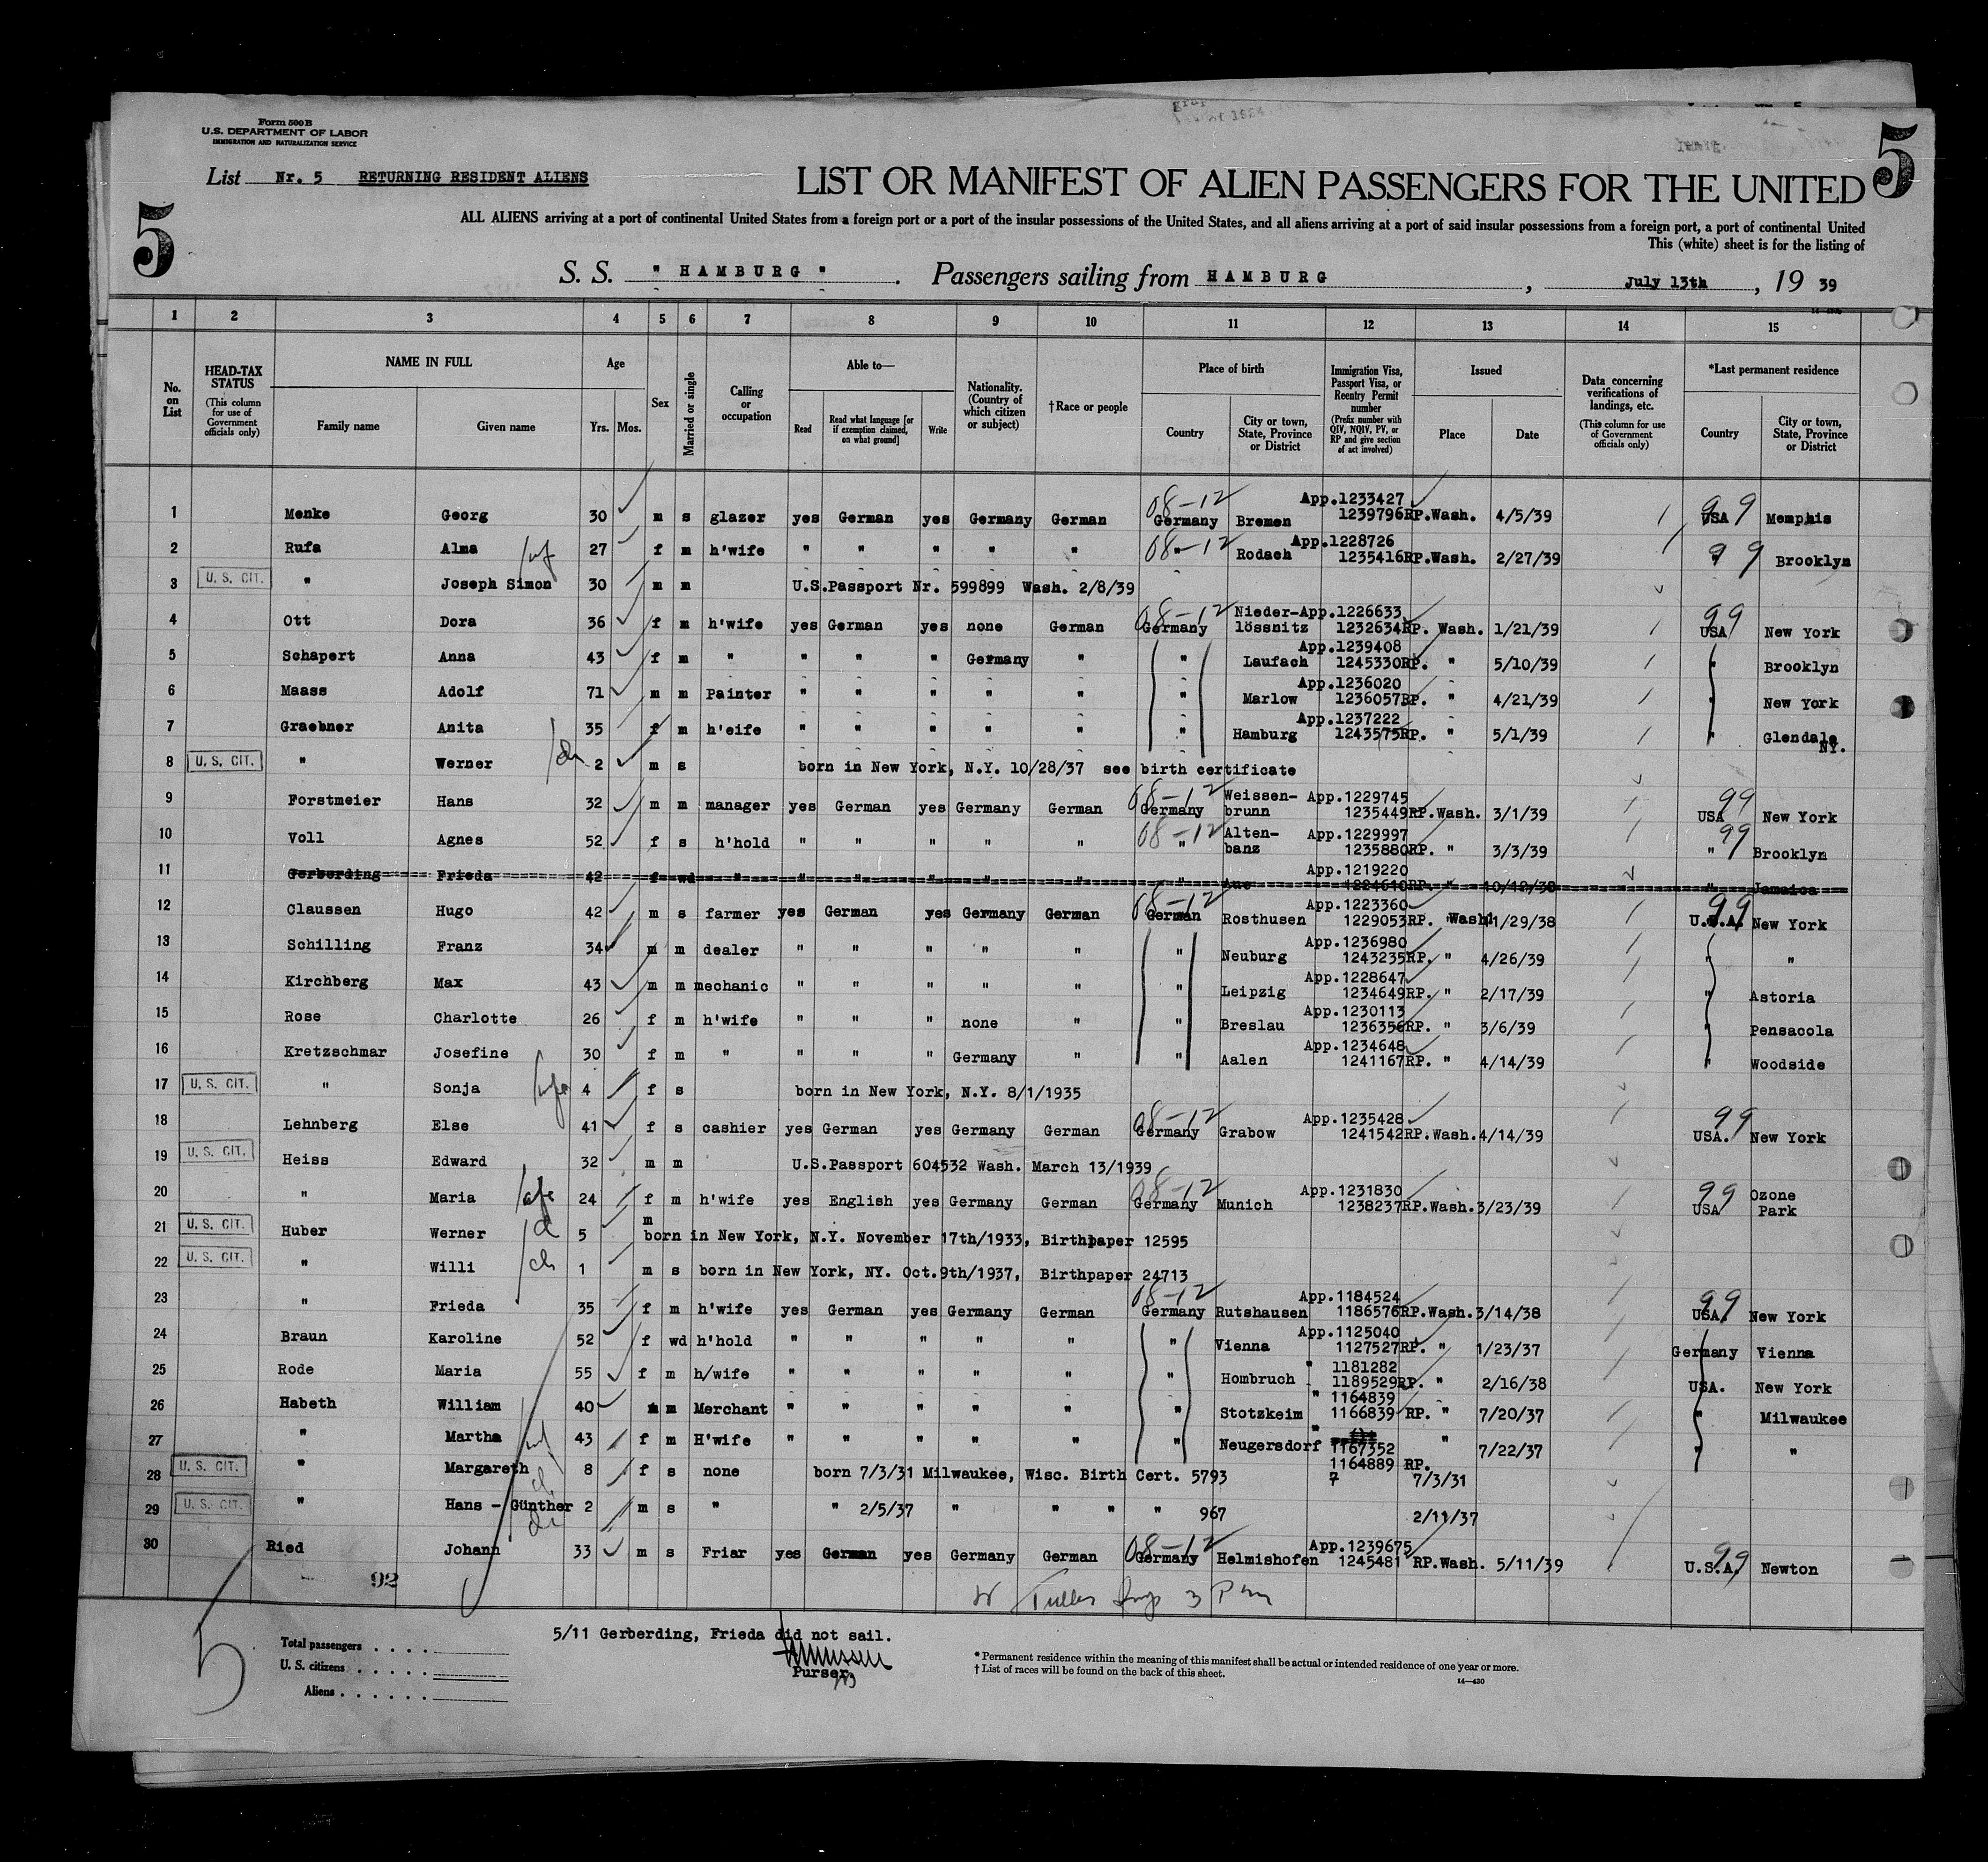 Form 500 B
U.S. DEPARTMENT OF LABOR
IMMIGRATION AND NATURALIZATION SERVICE
List Nr. 5 RETURNING RESIDENT ALIENS
5
5
LIST OR MANIFEST OF ALIEN PASSENGERS FOR THE UNITED
ALL ALIENS arriving at a port of continental United States from a foreign port or a port of the insular possessions of the United States, and all aliens arriving at a port of said insular possessions from a foreign port, a port of continental United
This (white) sheet is for the listing of
S. S. " HAMBURG " . Passengers sailing from HAMBURG , July 13th , 19 39
1 2 3 4 5 6 7 8 9 10 11 12 13 14 15
No. on List
HEAD-TAX STATUS (This column for use of Government officials only)
NAME IN FULL Family name Given name
Age Yrs. Mos.
Sex
Married or single
Calling or occupation
Able to— Read Read what language [or if exemption claimed, on what ground] Write
Nationality. (Country of which citizen or subject)
†Race or people
Place of birth Country City or town, State, Province or District
Immigration Visa, Passport Visa, or Reentry Permit number (Prefix number with QIV, NQIV, PV, or RP and give section of act involved)
Issued Place Date
Data concerning verifications of landings, etc. (This column for use of Government officials only)
*Last permanent residence Country City or town, State, Province or District
1 Menke Georg 30 m s glazer yes German yes Germany German 08-12 Germany Bremen App.1233427 1239796RP.Wash. 4/5/39 99 USA Memphis
2 Rufa Alma wf 27 f m h'wife " " " " " 08-12 " Rodach App.1228726 1235416RP.Wash. 2/27/39 99 " Brooklyn
3 U. S. CIT. " Joseph Simon 30 m m U.S.Passport Nr. 599899 Wash. 2/8/39
4 Ott Dora 36 f m h'wife yes German yes none German 08-12 Germany Nieder-lössnitz App.1226633 1232634RP. Wash. 1/21/39 99 USA New York
5 Schapert Anna 43 f m " " " " Germany " " Laufach App.1239408 1245330RP. " 5/10/39 " Brooklyn
6 Maass Adolf 71 m m Painter " " " " " " Marlow App.1236020 1236057RP. " 4/21/39 " New York
7 Graebner Anita 35 f m h'eife " " " " " " Hamburg App.1237222 1243575RP. " 5/1/39 " Glendale NY.
8 U. S. CIT. " Werner ch 2 m s born in New York, N.Y. 10/28/37 see birth certificate
9 Forstmeier Hans 32 m m manager yes German yes Germany German 08-12 Germany Weissen-brunn App.1229745 1235449RP.Wash. 3/1/39 99 USA New York
10 Voll Agnes 52 f s h'hold " " " " " 08-12 " Alten-banz App.1229997 1235880RP. " 3/3/39 99 " Brooklyn
11 Gerberding Frieda 42 f wd " " " " " " " Aue App.1219220 1224610RP. " 10/12/38 " Jamaica
12 Claussen Hugo 42 m s farmer yes German yes Germany German 08-12 German Rosthusen App.1223360 1229053RP. Wash 11/29/38 99 U.S.A. New York
13 Schilling Franz 34 m m dealer " " " " " " Neuburg App.1236980 1243235RP. " 4/26/39 " "
14 Kirchberg Max 43 m m mechanic " " " " " " Leipzig App.1228647 1234649RP. " 2/17/39 " Astoria
15 Rose Charlotte 26 f m h'wife " " " none " " Breslau App.1230113 1236356RP. " 3/6/39 " Pensacola
16 Kretzschmar Josefine 30 f m " " " " Germany " " Aalen App.1234648 1241167RP. " 4/14/39 " Woodside
17 U. S. CIT. " Sonja 4 f s born in New York, N.Y. 8/1/1935
18 Lehnberg Else 41 f s cashier yes German yes Germany German 08-12 Germany Grabow App.1235428 1241542RP.Wash.4/14/39 99 USA. New York
19 U. S. CIT. Heiss Edward 32 m m U.S.Passport 604532 Wash. March 13/1939
20 " Maria 24 f m h'wife yes English yes Germany German 08-12 Germany Munich App.1231830 1238237RP.Wash.3/23/39 99 USA Ozone Park
21 U. S. CIT. Huber Werner 5 m born in New York, N.Y. November 17th/1933, Birthpaper 12595
22 U. S. CIT. " Willi ch 1 m s born in New York, NY. Oct.9th/1937, Birthpaper 24713
23 " Frieda 35 f m h'wife yes German yes Germany German 08-12 Germany Rutshausen App.1184524 1186576RP.Wash.3/14/38 99 USA New York
24 Braun Karoline 52 f wd h'hold " " " " " " Vienna App.1125040 1127527RP. " 1/23/37 Germany Vienna
25 Rode Maria 55 f m h/wife " " " " " " Hombruch " 1181282 1189529RP. " 2/16/38 USA. New York
26 Habeth William 40 m m Merchant " " " " " " Stotzkeim " 1164839 1166839 RP. " 7/20/37 " Milwaukee
27 " Martha wf 43 f m H'wife " " " " " " Neugersdorf " 1167352 1164889 RP. " 7/22/37 " "
28 U. S. CIT. " Margareth ch 8 f s none born 7/3/31 Milwaukee, Wisc. Birth Cert. 5793 7 7/3/31
29 U. S. CIT. " Hans - Günther ch 2 m s " " 2/5/37 " " " " 967 2/11/37
30 Ried Johann 33 m s Friar yes German yes Germany German 08-12 Germany Helmishofen App.1239675 1245481 RP.Wash. 5/11/39 99 U.S.A. Newton
92
5
5/11 Gerberding, Frieda did not sail.
Purser
Total passengers . . . .
U. S. citizens . . . . . .
Aliens . . . . . .
* Permanent residence within the meaning of this manifest shall be actual or intended residence of one year or more.
† List of races will be found on the back of this sheet.
14—430